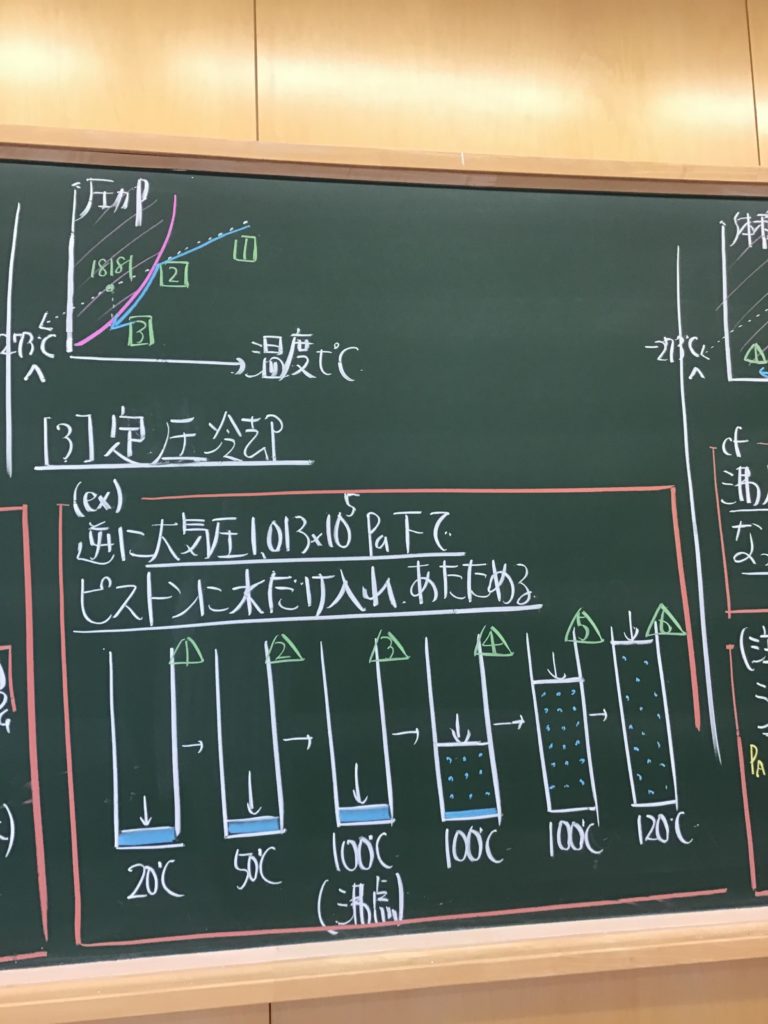 圧力P
1
18181
2
3
-273℃
^
温度t℃
[3] 定圧冷却
(ex)
逆に大気圧1.013×10⁵Pa下で
ピストンに水だけ入れ、あたためる
1
2
3
4
5
6
20℃
50℃
100℃
(沸点)
100℃
100℃
120℃
体積
-273℃
^
cf
沸
な
(注
PA